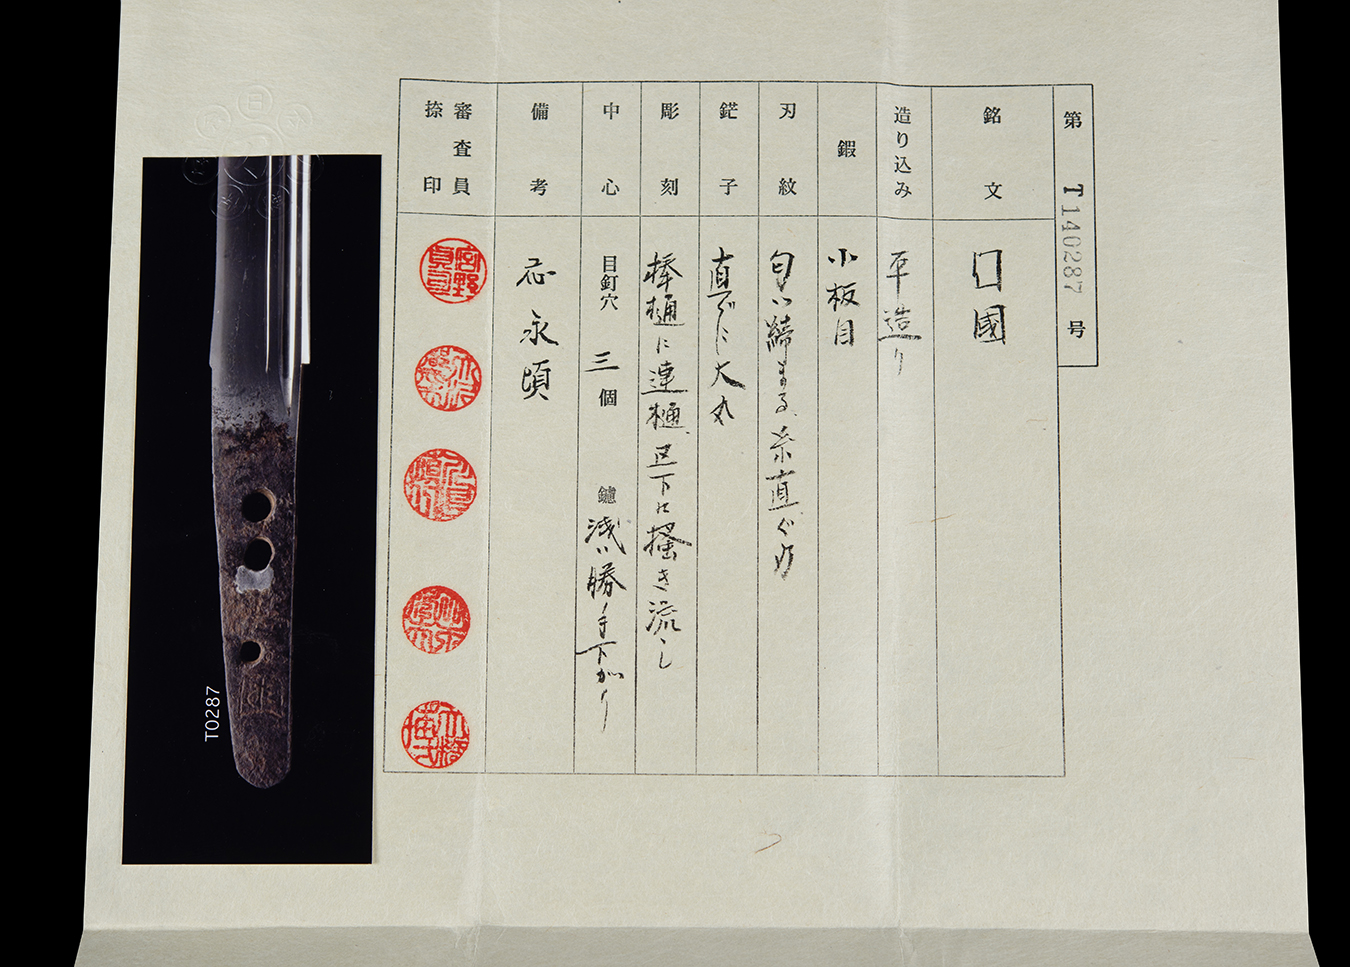 第 T140287 号
銘文
囗國
造り込み
平造り
鍜
小板目
刃紋
匂い締まる、糸直ぐ刃
鋩子
直ぐに大丸
彫刻
棒樋に連樋、区下に掻き流し
中心
目釘穴 三個 鑢 浅い勝手下がり
備考
応永頃
審査員
捺印
T0287